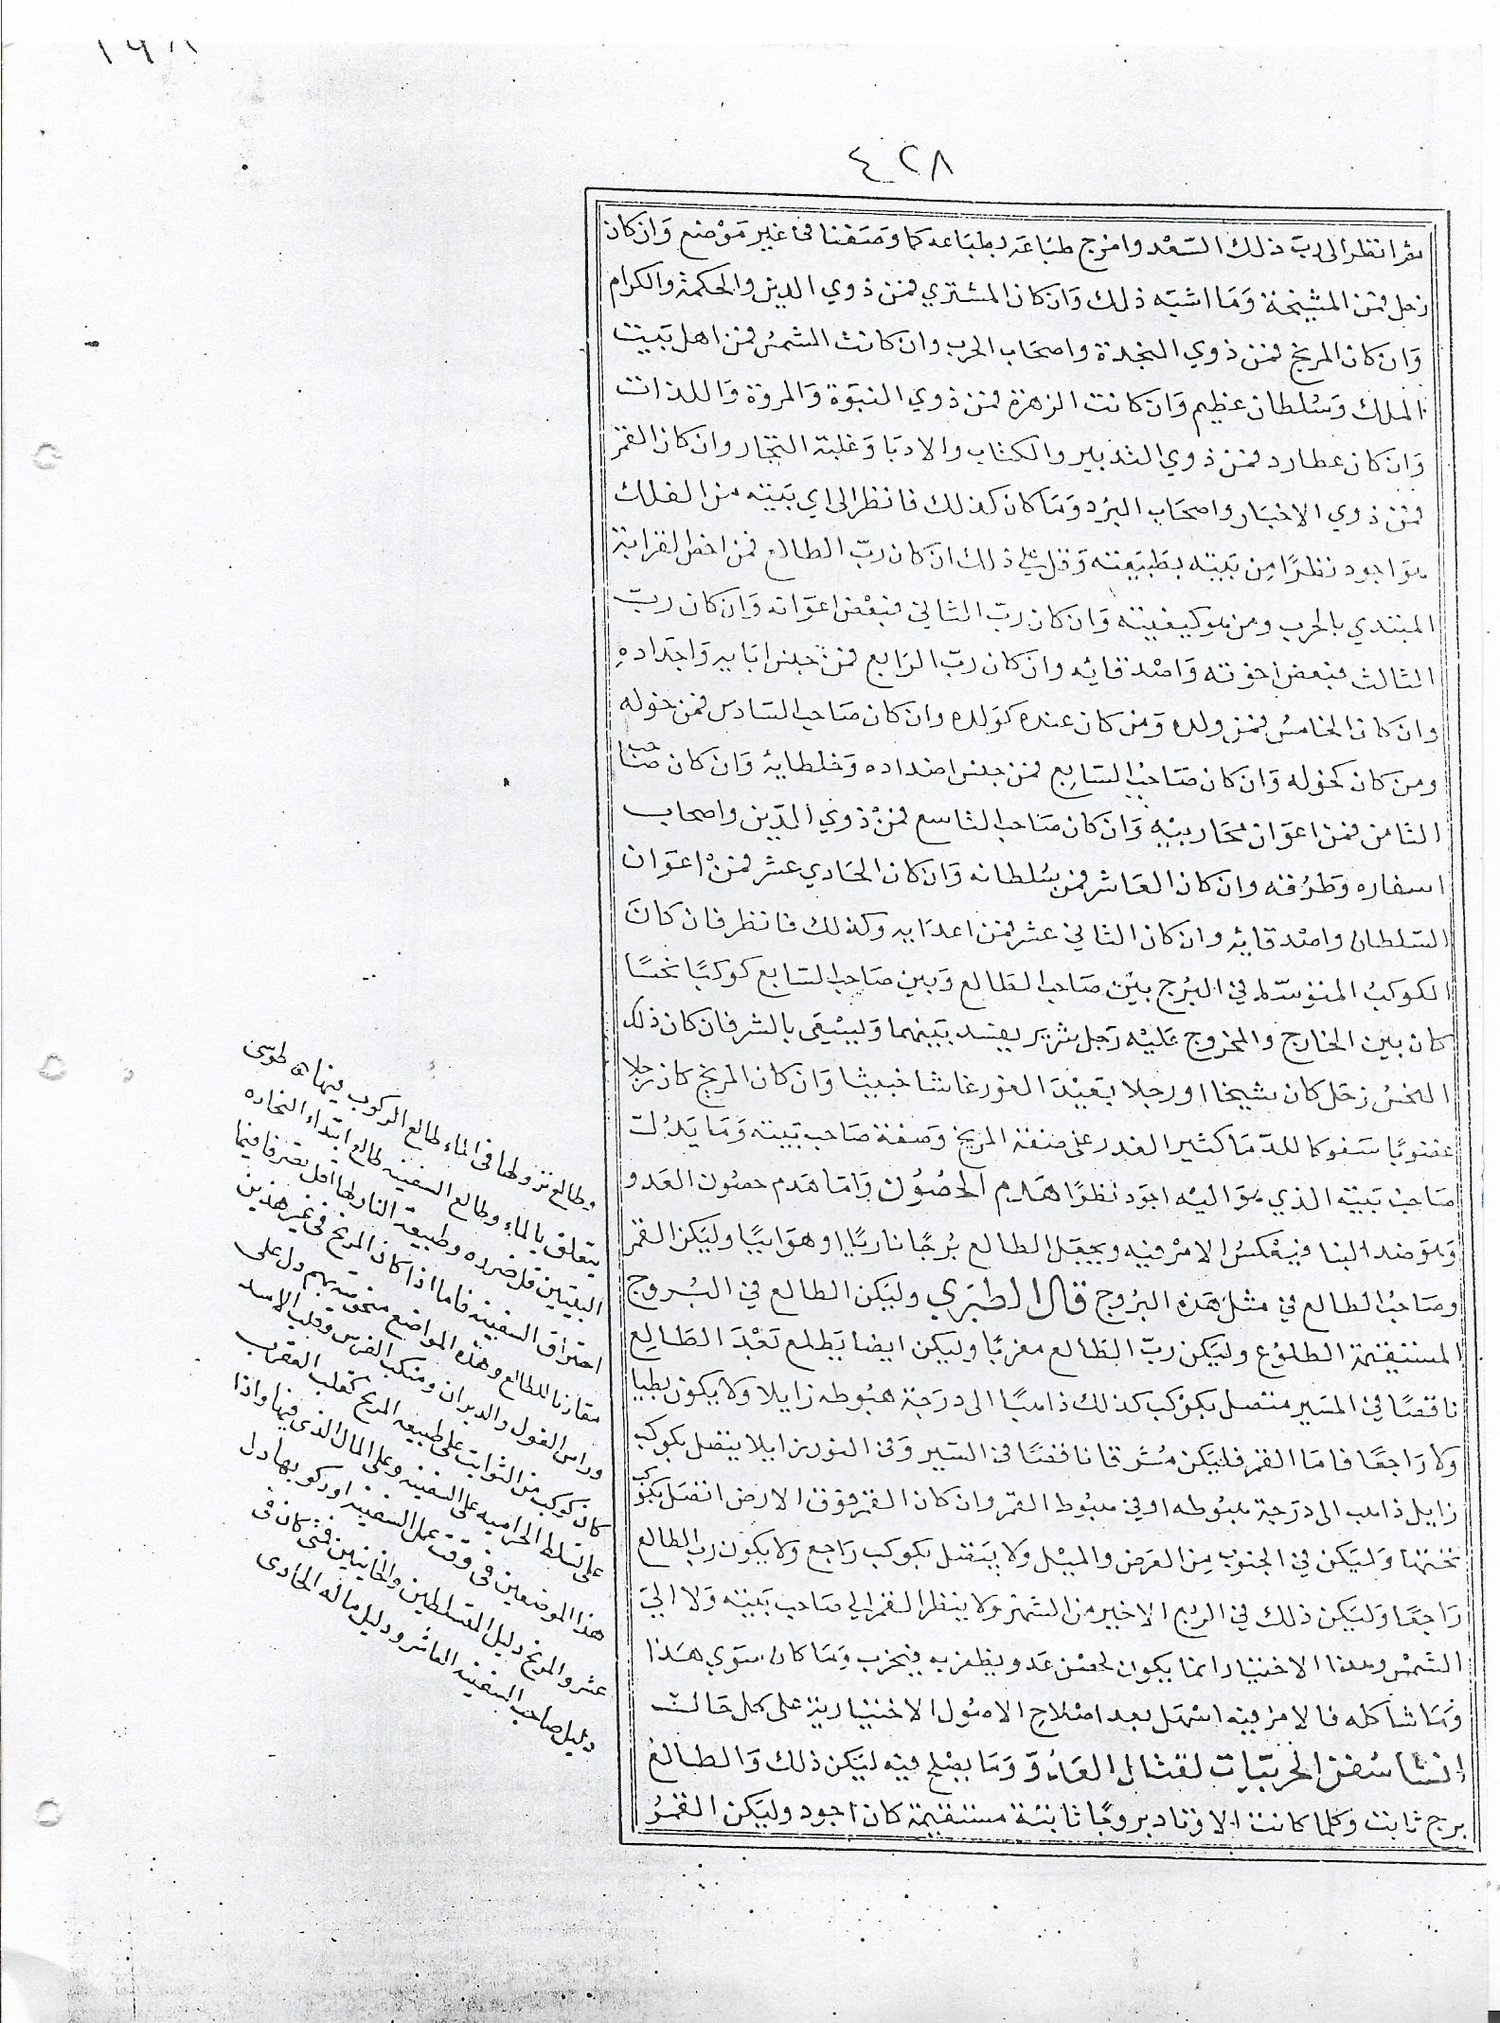 ٤٢٨
ثم انظر الى ربّ ذلك السَعْد وامزج طبَاعَه بطبَاعه كما وصَفنا فى غير مَوْضع وَان كان
زحل فمن المشيخة وَمَا اشبَه ذلك وَان كان المشتري فمن ذوي الدين والحكمة والكرام
وَان كان المريخ فمن ذوي النجدة واصحَاب الحرب وان كانت الشمسُ فمن اهل بَيت
الملك وَسُلطان عظيم وَان كانت الزهرة فمن ذوي النبوَة وَالمروة وَاللذات
وَان كان عطارد فمن ذوي التدبير والكتاب والادبَا وَغلبة التجار وان كان القمَر
فمن ذوي الاخبَار واصحَاب البرُد وَمَا كان كذلك فانظر الى اي بَيته من الفلك
هوَ اجود نظرًا مِن بَيته بطَبيعته وَقل في ذلك ان كان ربّ الطالع فمن اخص القرابة
المبتدي بالحرب ومن هو كيفيته وَان كان ربّ الثاني فبعْض اعوَانه وَان كان ربّ
الثالث فبعض اخوته وَاصْدقائه وان كان ربّ الرَابع فمن جنس ابَايه وَاجدَادهِ
وان كان الخامسُ فمن ولده وَمن كان عنده كوَلده وان كان صَاحب السَادس فمن خوله
ومن كان كخوله وَان كان صَاحبُ السَابِع فمن جنس اضداده وَخلطايهُ وَان كان صَاحب
الثامن فمن اعوَان محَاربيْهِ وَان كان صَاحب التاسع فمنْ ذوي الدّين واصحاب
اسفاره وَطرُقه وان كان العَاشر فمن سُلطانه وَان كان الحَادي عشر فمنْ اعوَان
السّلطان واصْدقايُه وان كان الثاني عشر فمن اعدَايه وكذلك فانظر فان كانَ
الكوكبُ المتوَسّط في البرُج بيْن صَاحب الطالع وَبين صَاحب السَابع كوكبًا نحسًا
كان بين الخارج والمخروج عَليْه رَجل شرير يفسد بَينهما وَليسْعَى بالشر فان كان ذلك
النحسُ زحَل كان شيخا او رجلا بَعيْدَ الغور غاشا خبيثا وَان كان المريخ كان رَجلا
غضوبًا سَفوكا للدّمَا كثير الغدر على صفة المريخ وَصفة صَاحب بَيته وَمَا يَدُلّ
صَاحبُ بَيته الذي هوَ اليْه اجوَد نظرًا هَدم الحُصُوْن وَامّا هَدم حصُون العَدو
وَهوَ ضد البنا فيَعْكسُ الامْر فيْه ويجعَل الطالع بُرجًا ناريًا او هوَائيًا وليَكن القمَر
وصَاحبُ الطالع في مثل هَذه البرُوج قال الطبَري وليَكن الطالع في البُروج
المستقيمة الطلوُع وليَكن ربّ الطالع مغربًا وليكن ايضا يَطلع بَعْدَ الطالِع
ناقصًا في المسَير متصل بكوْكب كذلك ذاهبًا الى درَجَة هبُوطه زايلا وَلا يكون بطيا
ولا رَاجعًا فامَا القمَر فليَكن مُشرقا ناقصًا في السَير وَفى النور زايلا يتصل بكوكب
زايل ذاهب الى درَجة هبُوطه او في هبُوط القمَر وان كان القمَر فوْق الارض اتصَل بكوْكب
تحتهَا وَليَكن في الجنوب مِن العرَض والميْل وَلا يتصل بكوكب رَاجع ولا يكون ربّ الطالع
رَاجعًا وَليَكن ذلك في الربع الاخير من الشهر ولا ينظر القمر الي صَاحب بَيته وَلا اليَ
الشمس وهذا الاختيار انما يكون لحصْن عَدو يظفر به فيخرب وَمَا كان سوَي هَذا
وَمَا شاكله فالامر فيه اسْهَل بعد اصْلاح الاصُول الاختيارية على كل حَالت
انشا سُفن الحربيّات لقتال العَدُوّ وَمَا يصْلح فيه ليَكن ذلك وَالطالع
برج ثابت وَكلما كانت الاوتاد بروجًا ثابتة مستقيمة كان اجود وليَكن القمَرُ
وطالع نزولها فى الماء طالع الركوب فيها طوسى
يتعلق بالماء وطالع السفينة طالع ابتداء النجاره
احتراق السفينة فاما اذا كان المريخ فى غير هذين
مقارنا للطالع وهذه المواضع منحوسة بهم دل على
وراس الغول والدبران ومنكب الفرس وقلب الاسد
كان كوكب من الثوابت على طبيعه المريخ كقلب العقرب
على تسلط الحراميه على السفينة وعلى المال الذى فيها واذا
هذا الموضعين فى وقت عمل السفينة او ركوبها دل
عشر والمريخ دليل المتسلطين والخاينين فمتى كان فى
دليل صاحب السفينة العاشر ودليل ماله الحادى